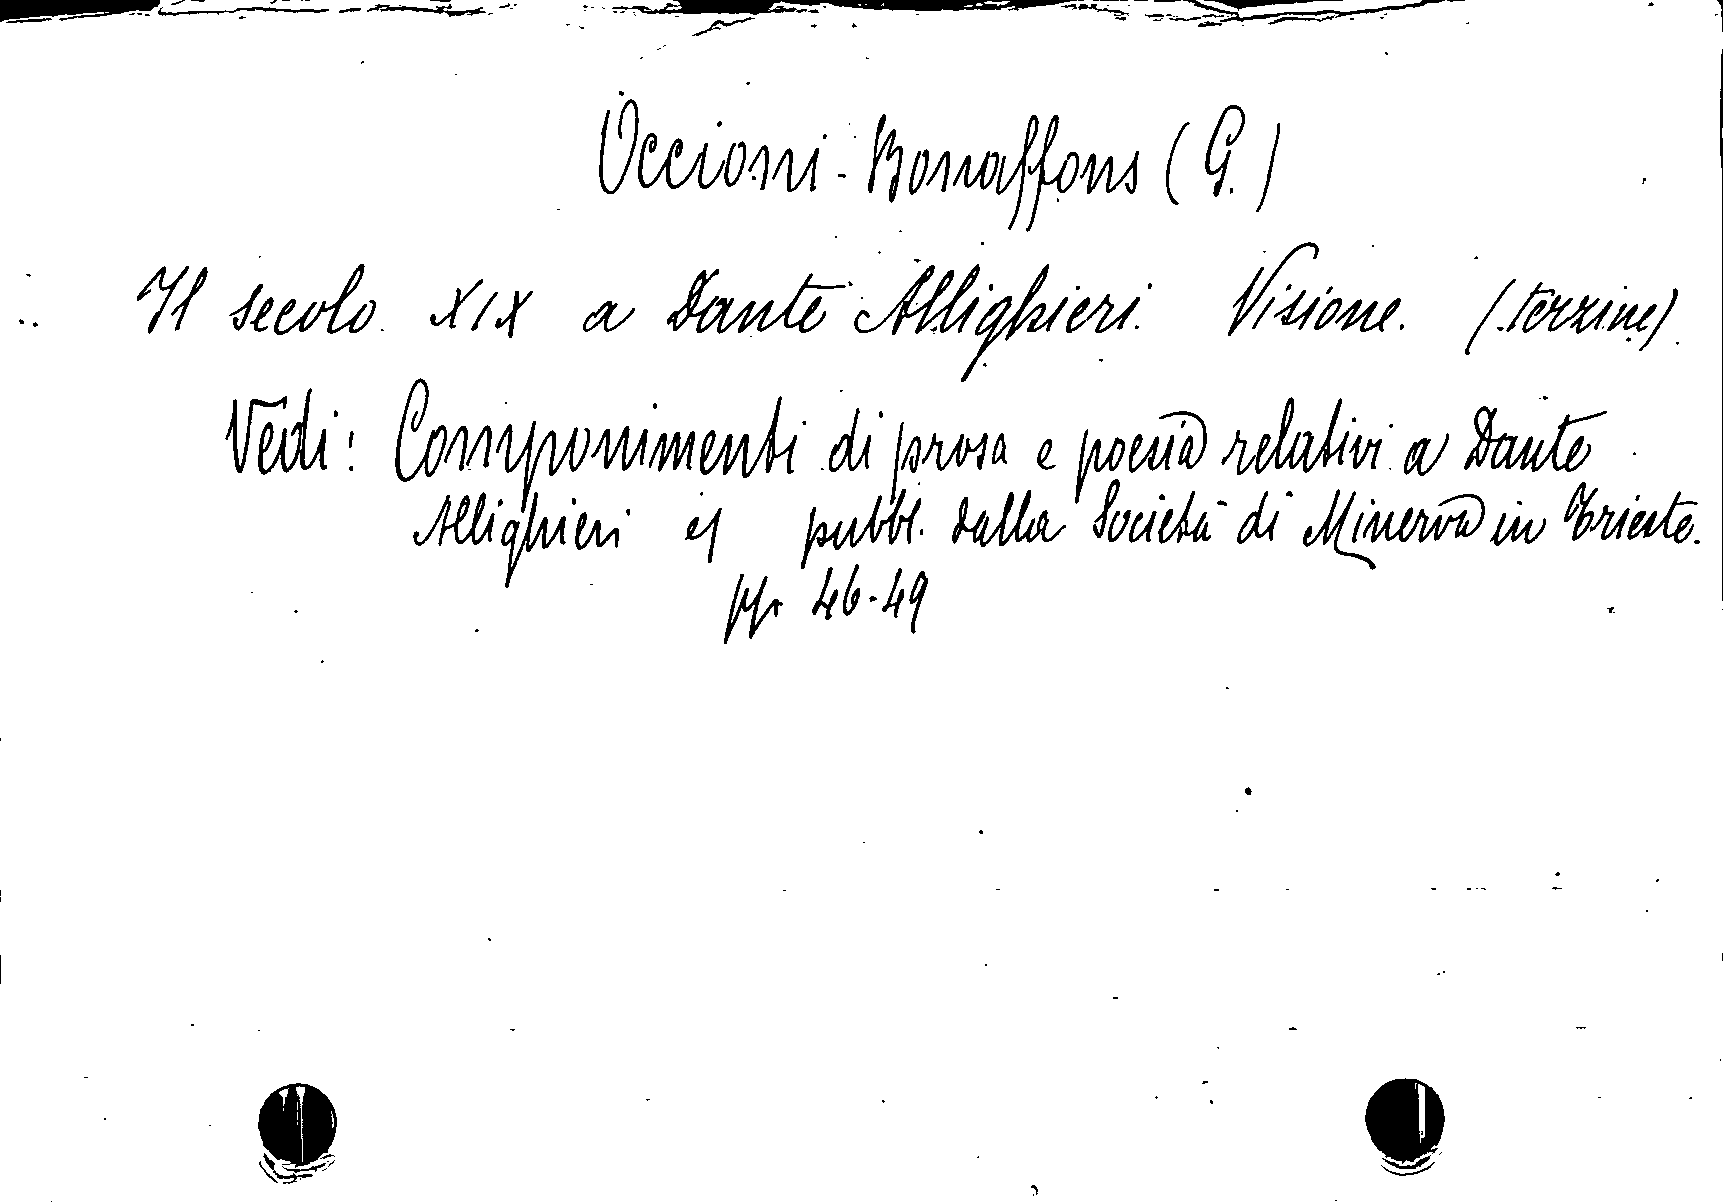 Occioni-Bonaffons (G.)
Il secolo XIX a Dante Allighieri. Visione. (terzine)
Vedi: Componimenti di prosa e poesia relativi a Dante
Allighieri e pubbl. dalla Società di Minerva in Trieste.
pp. 46-49